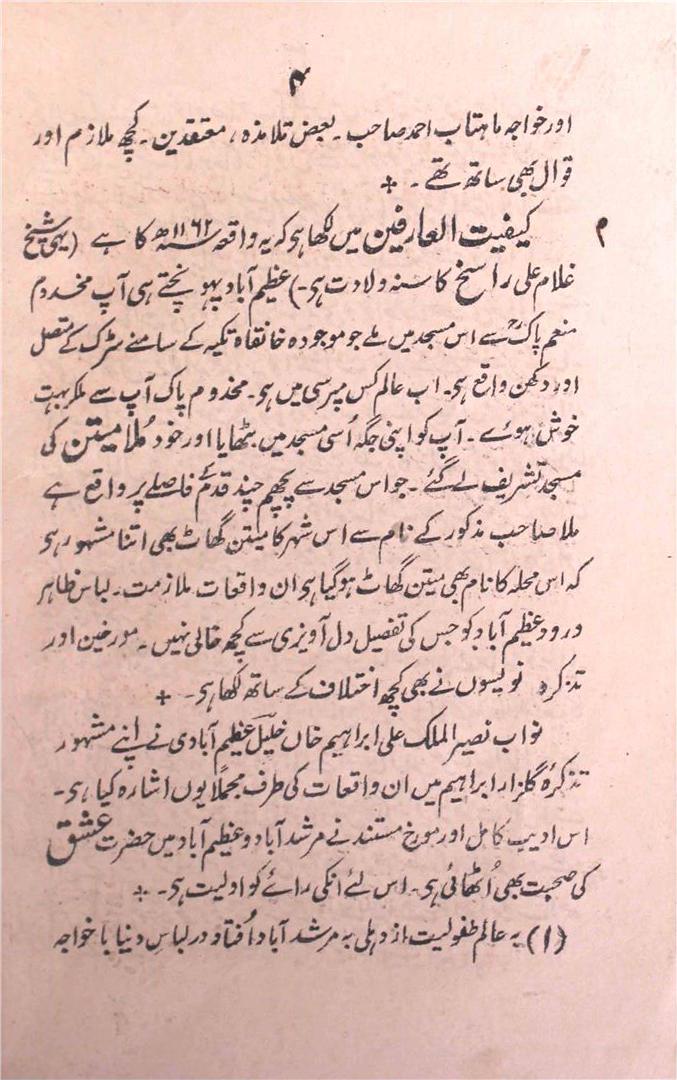 ۴
اور خواجہ ماہتاب احمد صاحب ۔ بعض تلامذہ، معتقدین ۔ کچھ ملازم اور
قوال بھی ساتھ تھے ۔ +
م کیفیت العارفین میں لکھا ہو کہ یہ واقعہ ۱۱۶۲ھ کا ہے (یہی شیخ
غلام علی راسخ کا سنہ ولادت ہی۔) عظیم آباد پہونچتے ہی آپ مخدوم
منعم پاکؒ سے اس مسجد میں ملے جو موجودہ خانقاہ تکیہ کے سامنے سڑک کے متصل
اور دکھن واقع ہی۔ اب عالم کس مپرسی میں ہی۔ مخدوم پاک آپ سے ملکر بہت
خوش ہوئے ۔ آپ کو اپنی جگہ اُسی مسجد میں بٹھایا اور خود مُلا میتن کی
مسجد تشریف لے گئے ۔ جو اس مسجد سے پچھم چند قدم کے فاصلے پر واقع ہے
ملا صاحب مذکور کے نام سے اس شہر کا میتن گھاٹ بھی اتنا مشہور ہو
کہ اس محلہ کا نام بھی میتن گھاٹ ہو گیا ہی ان واقعات ملازمت ۔ لباس ظاہر
درود عظیم آباد کو جس کی تفصیل دل آویزی سے کچھ خالی نہیں ۔ مورخین اور
تذکرہ نویسوں نے بھی کچھ اختلاف کے ساتھ لکھا ہی ۔ +
نواب نصیر الملک علی ابراہیم خاں خلیلؔ عظیم آبادی نے اپنے مشہور
تذکرۂ گلزار ابراہیم میں ان واقعات کی طرف مجملاً یوں اشارہ کیا ہی ۔
اس ادیب کامل اور مورخ مستند نے مرشد آباد و عظیم آباد میں حضرت عشق
کی صحبت بھی اُٹھائی ہی ۔ اس لئے انکی رائے کو اولیت ہی ۔ +
(۱) بہ عالم طفولیت از دہلی بہ مرشد آباد اُفتاد و در لباسِ دنیا با خواجہ